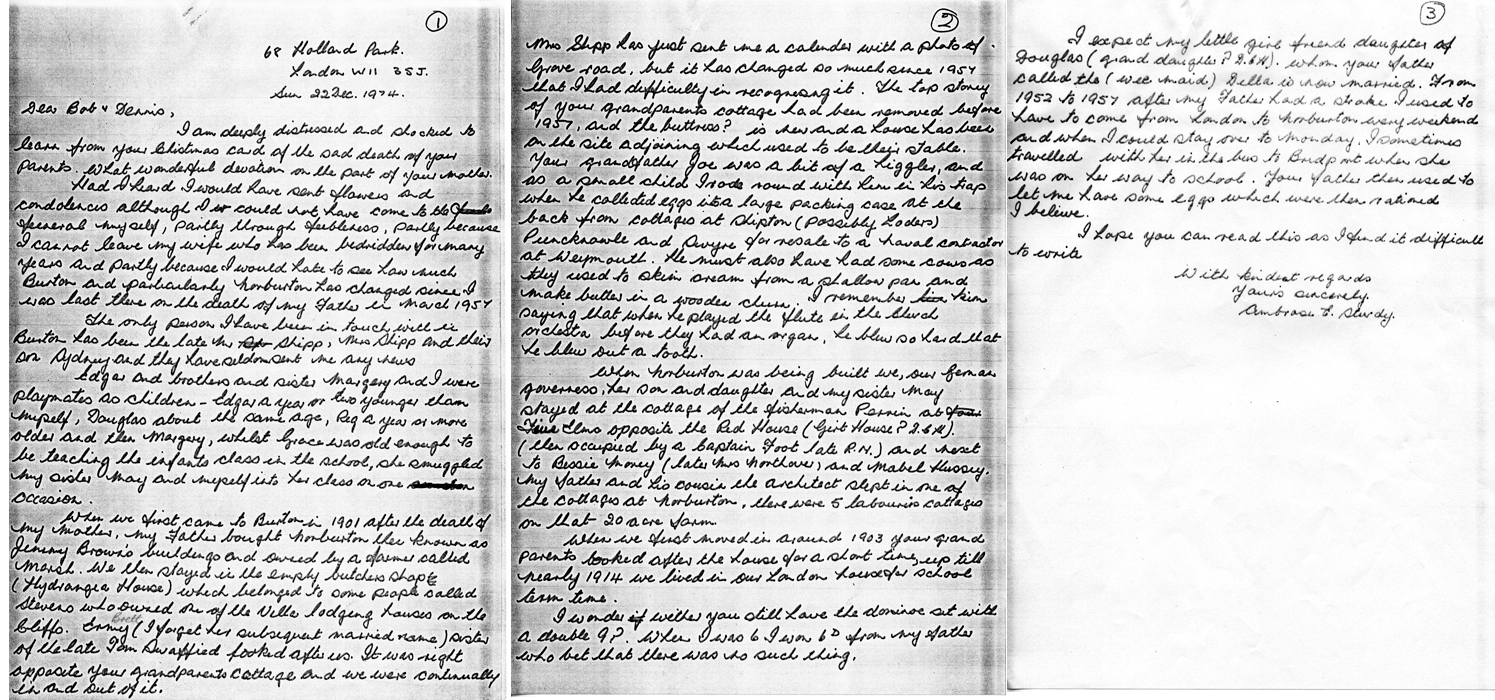 1
68 Holland Park.
London W11 3SJ.
Sun 22 Dec. 1974.
Dear Bob & Dennis,
I am deeply distressed and shocked to
learn from your Christmas card of the sad death of your
parents. What wonderful devotion on the part of your mother.
Had I heard I would have sent flowers and
condolences although I could not have come to the
funeral myself, partly through feebleness, partly because
I cannot leave my wife who has been bedridden for many
years and partly because I would hate to see how much
Burton and particularly Norburton has changed since I
was last there on the death of my Father in March 1957
The only person I have been in touch with in
Burton has been the late Mr Shipp, Mrs Shipp and their
son Sydney and they have seldom sent me any news
Edgar and brothers and sister Margery and I were
playmates as children - Edgar a year or two younger than
myself, Douglas about the same age, Reg a year or more
older and then Margery, whilst Grace was old enough to
be teaching the infants class in the school, she smuggled
my sister May and myself into her class on one
occasion.
When we first came to Burton in 1901 after the death of
my mother, my Father bought Norburton then known as
Jimmy Brown's buildings and owned by a farmer called
Marsh. We then stayed in the empty butchers shop
(Hydrangia House) which belonged to some people called
Stevens who owned one of the Ville lodging houses on the
Cliffs. Emmy (I forget her subsequent married name) sister
Brett
of the late Tom Swaffield looked after us. It was right
opposite your grandparents cottage and we were continually
in and out of it.
2
Mrs Shipp has just sent me a calender with a photo of
Grove road, but it has changed so much since 1957
that I had difficulty in recognising it. The top storey
of your grandparents cottage had been removed before
1957, and the buttress? is new and a house has been
on the site adjoining which used to be their stable.
Your grandfather Joe was a bit of a higgler, and
as a small child I rode round with him in his trap
when he collected eggs into a large packing case at the
back from cottages at Shipton (possibly Loders)
Puncknowle and Swyre for resale to a naval contractor
at Weymouth. He must also have had some cows as
they used to skim cream from a shallow pan and
make butter in a wooden churn. I remember him
saying that when he played the flute in the Church
orchestra before they had an organ, he blew so hard that
he blew out a tooth.
When Norburton was being built we, our German
governess, her son and daughter and my sister May
stayed at the cottage of the fisherman Perrin at
Elms opposite the Red House (Girt House? D.G.H).
(then occupied by a Captain Foot late R.N.) and next
to Bessie Money (later Mrs Northover) and Mabel Hussey.
My father and his cousin the architect slept in one of
the cottages at Norburton, there were 5 labourers cottages
on that 20 acre farm
When we first moved in around 1903 your grand
parents looked after the house for a short time, up till
nearly 1914 we lived in our London house for school
term time.
I wonder if wether you still have the dominoe set with
a double 9?. When I was 6 I won 6D from my father
who bet that there was no such thing.
3
I expect my little girl friend daughter of
Douglas (grand daughter? D.G.H). whom your father
called the (wee maid) Della is now married. From
1952 to 1957 after my Father had a stroke I used to
have to come from London to Norburton every weekend
and when I could stay over to Monday. I sometimes
travelled with her in the bus to Bridport when she
was on her way to school. Your father then used to
let me have some eggs which were then rationed
I believe.
I hope you can read this as I find it difficult
to write
With kindest regards
Yours sincerely.
Ambrose E. Sturdy.